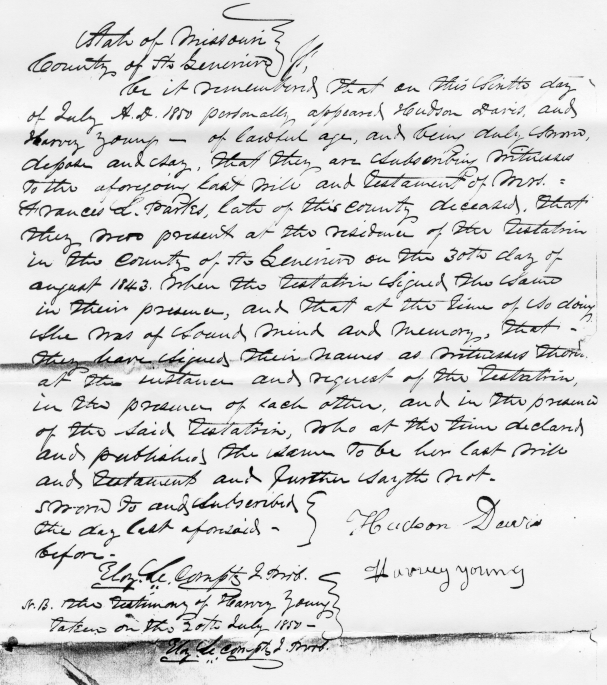 State of Missouri
County of Ste Genevieve } SS,
be it remembered that on this Sixth day
of July A.D. 1850 personally appeared Hudson Davis, and
Harvey Young — of lawful age, and being duly sworn,
depose and say, that they are subscribing witnesses
to the aforegoing last will and testament of Mrs. =
Frances L. Parks, late of this county deceased. that
they were present at the residence of the testatrix
in the County of Ste Genevieve on the 30th day of
august 1843. When the testatrix signed the same
in their presence, and that at the time of so doing
she was of sound mind and memory, that -
they have signed their names as witnesses
at the instance and request of the testatrix,
in the presence of each other, and in the presence
of the said testatrix, who at the time declared
and published the same to be her last will
and testament and further sayth not.
sworn to and subscribed
the day last aforesaid -
before -
Hudson Davis
Harvey young
Eloy. Le. Compte J. Prob.
N.B. the testimony of Harvey Young
taken on the 20th July 1850 -
Eloy Le Compte J. Prob.